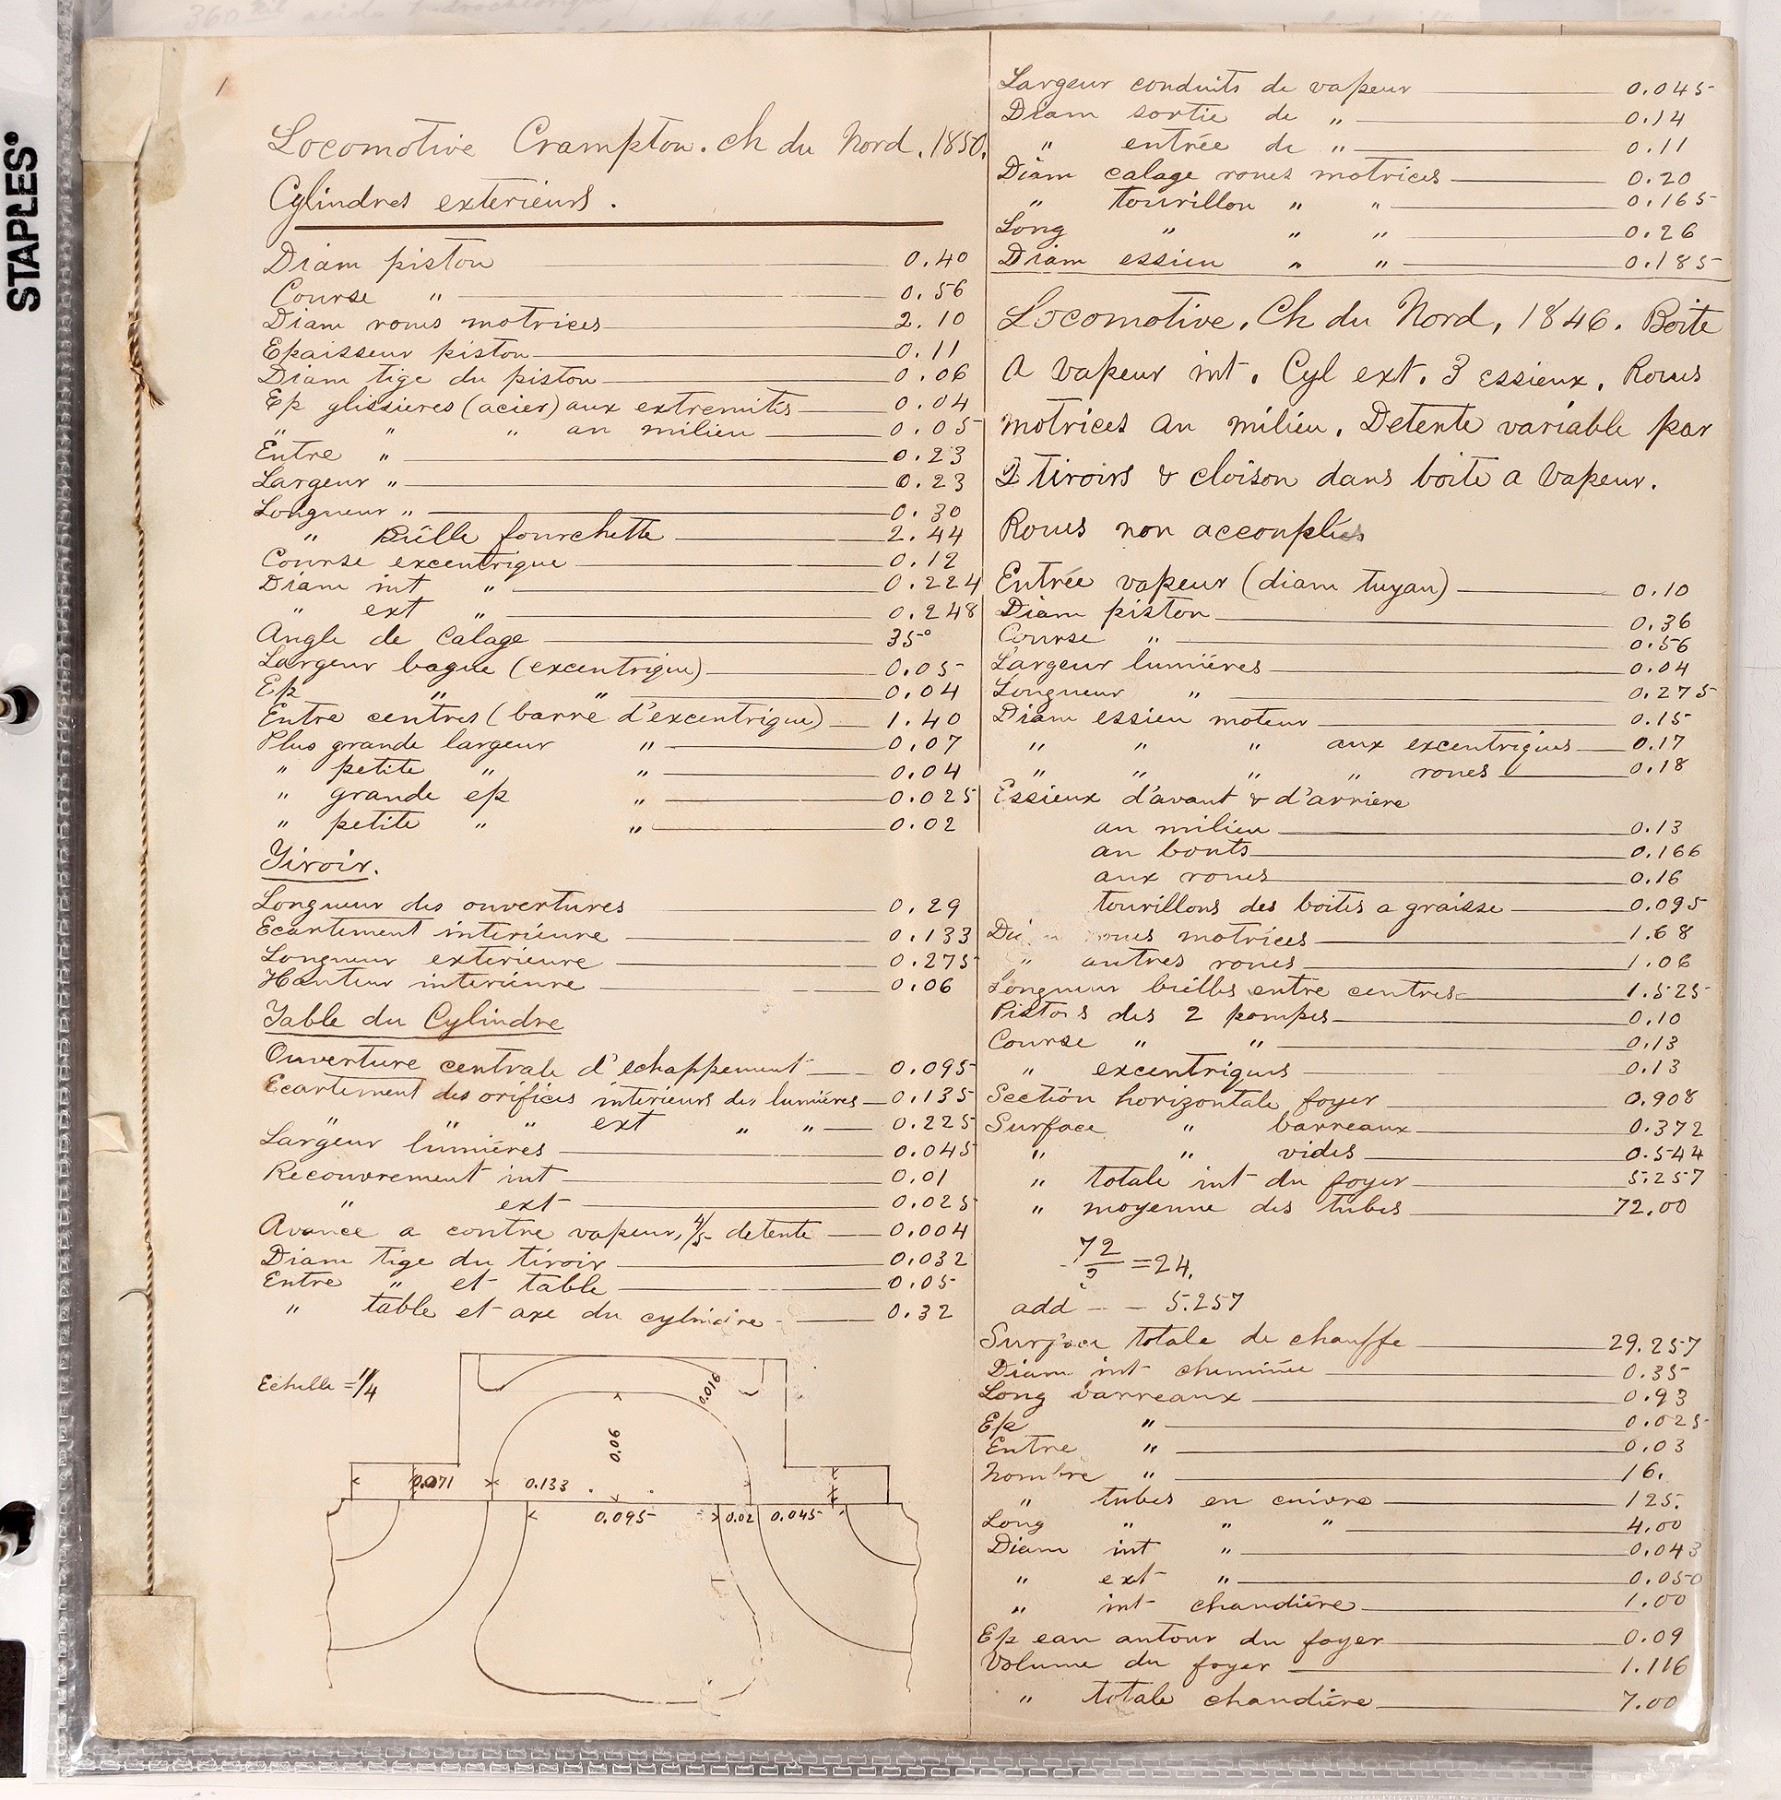 STAPLES®
1
Locomotive Crampton. Ch du Nord. 1850.
Cylindres exterieurs.
Diam piston 0.40
Course " 0.56
Diam roues motrices 2.10
Epaisseur piston 0.11
Diam tige du piston 0.06
Ep glissieres (acier) aux extremités 0.04
" " " au milieu 0.05
Entre " 0.23
Largeur " 0.23
Longueur " 0.30
" Bielle fourchette 2.44
Course excentrique 0.12
Diam int " 0.224
" ext " 0.248
Angle de Calage 35°
Largeur bague (excentrique) 0.05
Ep " " 0.04
Entre centres (barre d'excentrique) 1.40
Plus grande largeur " 0.07
" petite " " 0.04
" grande ep " 0.025
" petite " " 0.02
Tiroir.
Longueur des ouvertures 0.29
Ecartement interieure 0.133
Longueur exterieure 0.275
Hauteur interieure 0.06
Table du Cylindre
Ouverture centrale d'echappement 0.095
Ecartement des orifices interieurs des lumiéres 0.135
" " " ext " " 0.225
Largeur lumiéres 0.045
Recouvrement int 0.01
" ext 0.025
Avance a contre vapeur, 4/5 detente 0.004
Diam tige du tiroir 0.032
Entre " et table 0.05
" table et axe du cylindre 0.32
Echelle = 1/4
0.016
0.06
0.071 0.133
0.095 0.02 0.045
Largeur conduits de vapeur 0.045
Diam sortie de " 0.14
" entrée de " 0.11
Diam calage roues motrices 0.20
" tourillon " " 0.165
Long " " " 0.26
Diam essieu " " 0.185
Locomotive. Ch du Nord, 1846. Boite
a vapeur int. Cyl ext. 3 essieux. Roues
motrices au milieu. Detente variable par
2 tiroirs & cloison dans boite a vapeur.
Roues non accouplées
Entrée vapeur (diam tuyau) 0.10
Diam piston 0.36
Course " 0.56
Largeur lumiéres 0.04
Longueur " 0.275
Diam essieu moteur 0.15
" " " aux excentriques 0.17
" " " " roues 0.18
Essieux d'avant & d'arriere
au milieu 0.13
au bouts 0.166
aux roues 0.16
tourillons des boites a graisse 0.095
Diam roues motrices 1.68
" autres roues 1.06
Longueur bielles entre centres 1.525
Pistons des 2 pompes 0.10
Course " " 0.13
" excentriques 0.13
Section horizontale foyer 0.908
Surface " barreaux 0.372
" " vides 0.544
" totale int du foyer 5.257
" moyenne des tubes 72.00
72/3 = 24.
add - - 5.257
Surface totale de chauffe 29.257
Diam int cheminée 0.35
Long barreaux 0.93
Ep " 0.025
Entre " 0.03
Nombre " 16.
" tubes en cuivre 125.
Long " " " 4.00
Diam int " 0.043
" ext " 0.050
" int chaudiére 1.00
Ep eau autour du foyer 0.09
Volume du foyer 1.116
" totale chaudiére 7.00